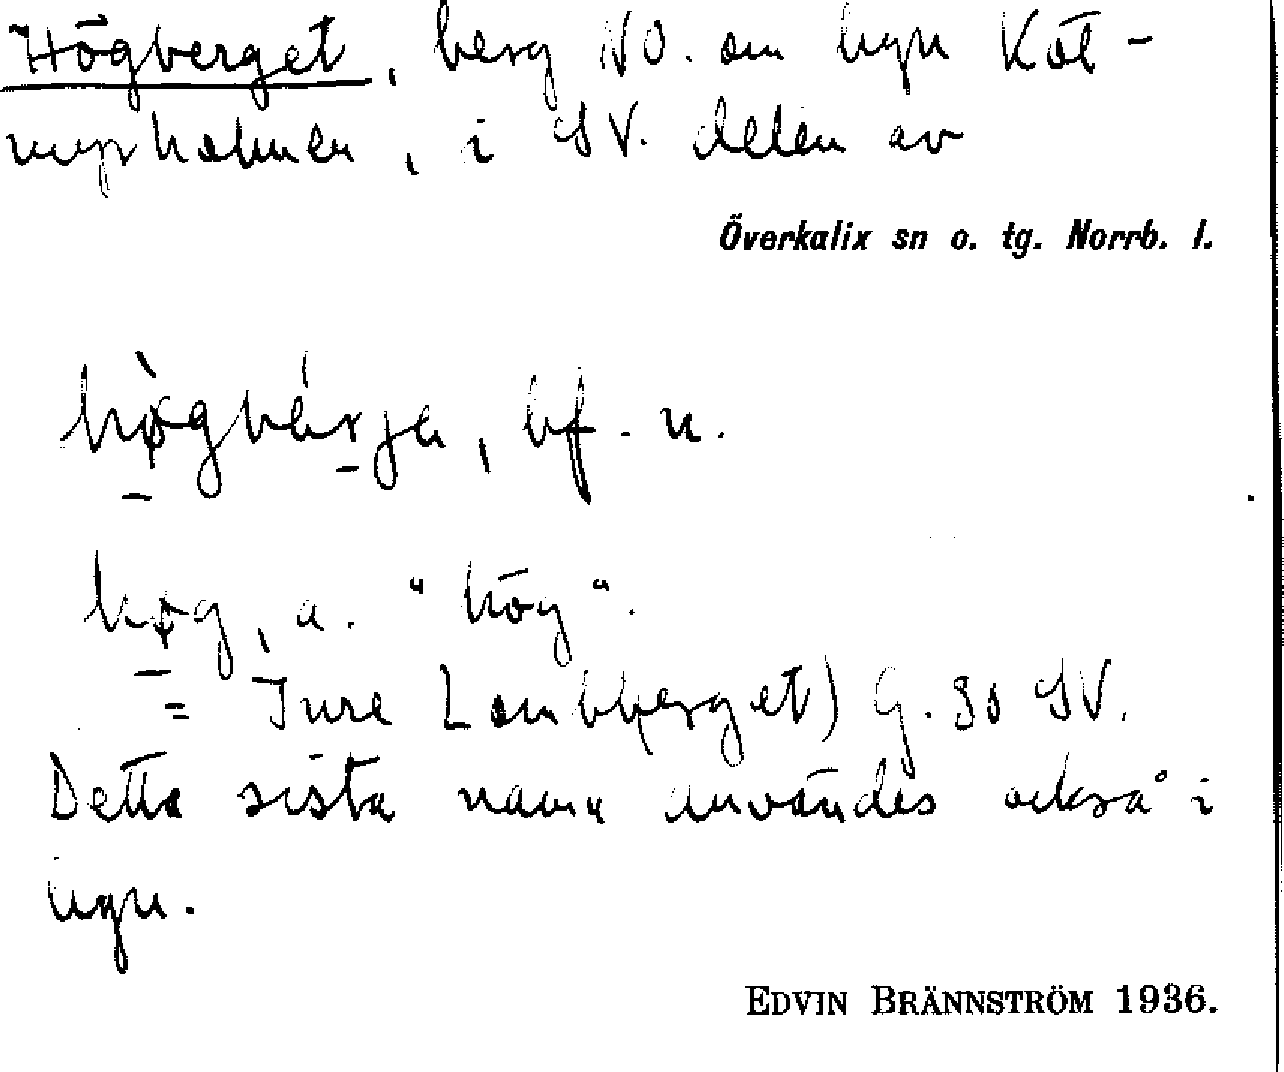 Högberget, berg NO. om byn Kät-
myrholmen, i SV. delen av
Överkalix sn o. tg. Norrb. l.
hø̀gbárjen, bf. n.
høg, a. "hög".
= Inre Lombberget) G. 80 SV.
Detta sista namn användes också i
byn.
EDVIN BRÄNNSTRÖM 1936.